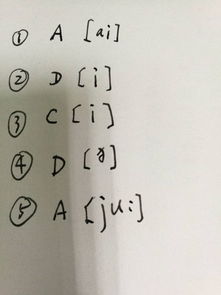 ① A [ai]
② D [i]
③ C [i]
④ D [ɤ]
⑤ A [ju:]